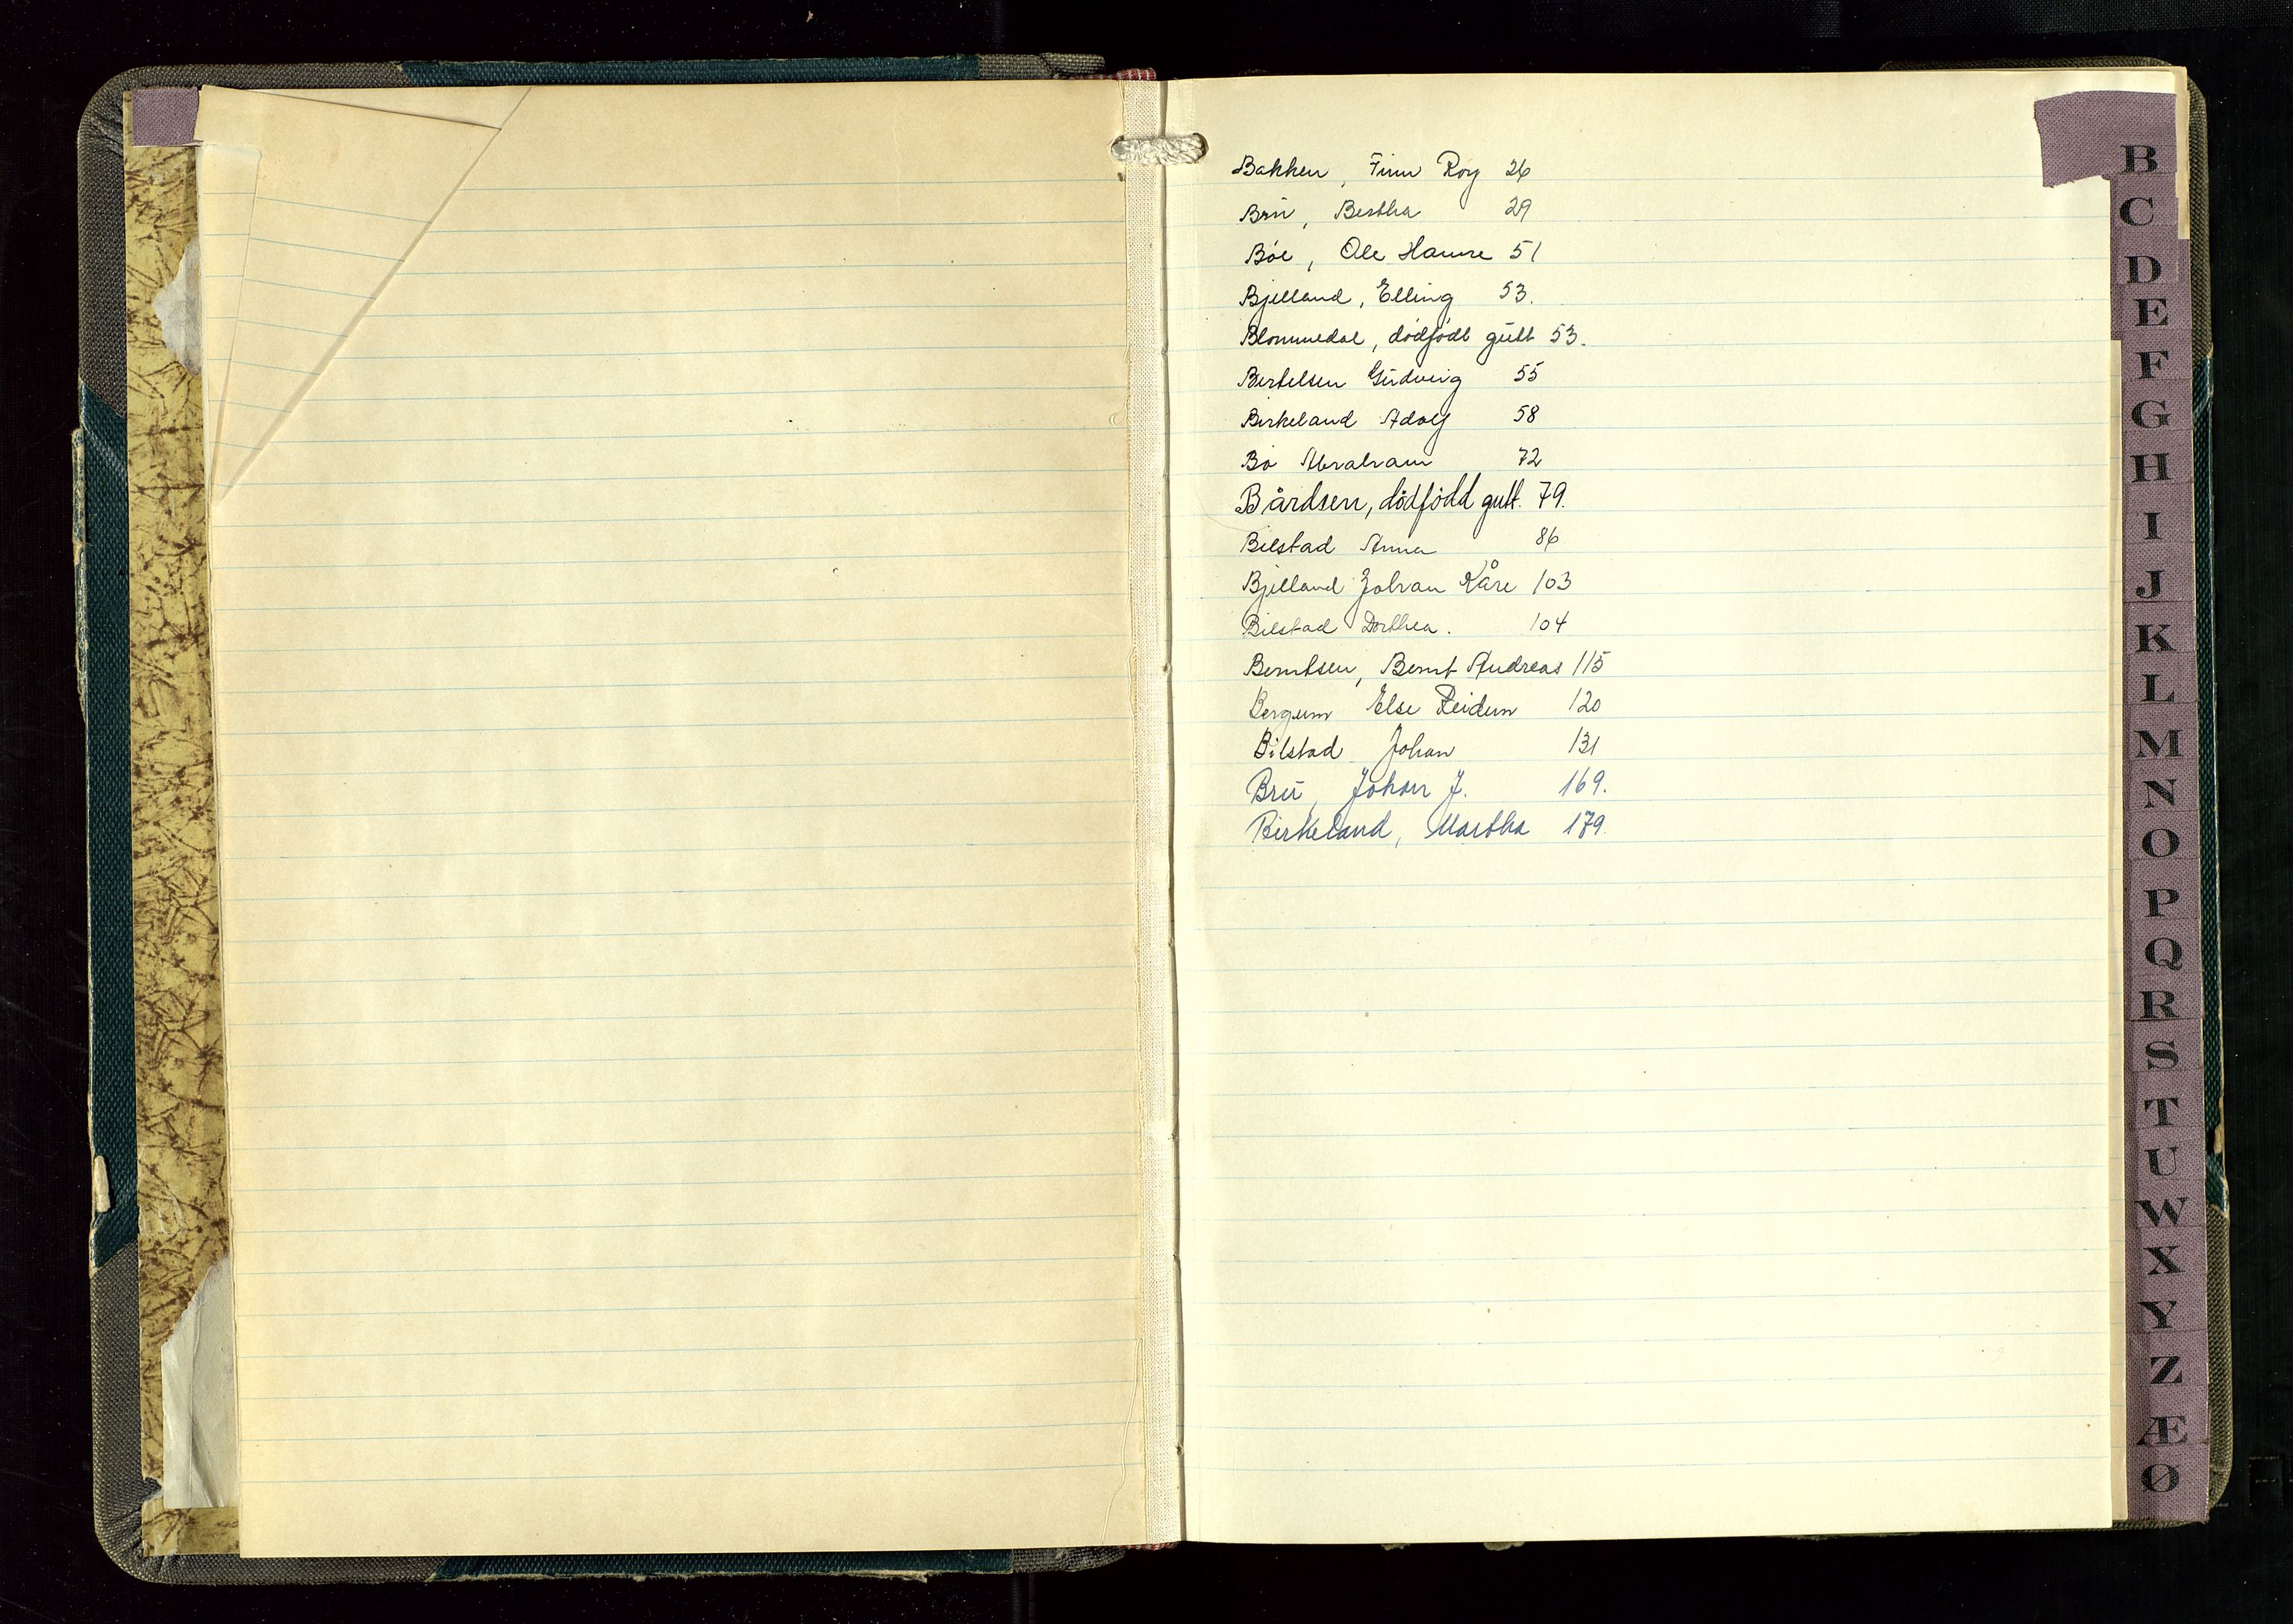 Bakken, Finn Roy 26
Brū, Bertha 29
Bøe, Ole Hamre 51
Bjelland, Elling 53.
Blommedal, dødfødt gūtt 53.
Bertelsen Gūdveig 55
Birkeland Adolf 58
Bø Abraham 72
Bårdsen, dødfødd gutt. 79.
Bilstad Anna 86
Bjelland Johan Kåre 103
Bilstad Dorthea. 104
Berntsen, Bernt Andreas 115
Bergum Else Reidun 120
Bilstad Johan 131
Brū, Johan J. 169.
Birkeland, Martha 179.
B
C
D
E
F
G
H
I
J
K
L
M
N
O
P
Q
R
S
T
U
W
X
Y
Z
Æ
Ø